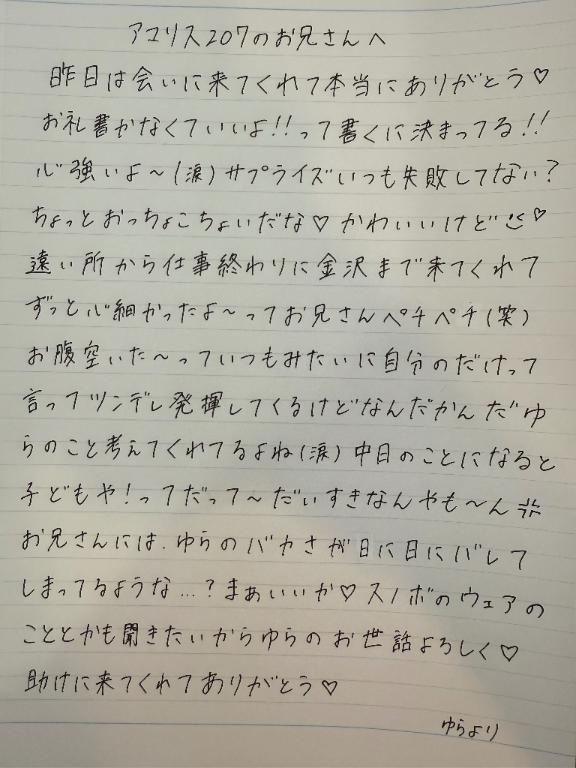 アユリス207のお兄さんへ
昨日は会いに来てくれて本当にありがとう♡
お礼書かなくていいよ!!って書くに決まってる!!
心強いよ〜(涙)サプライズいつも失敗してない?
ちょっとおっちょこちょいだな♡かわいいけど♡
遠い所から仕事終わりに金沢まで来てくれて
ずっと心細かったよ〜ってお兄さんペチペチ(笑)
お腹空いた〜っていつもみたいに自分のだけって
言ってツンデレ発揮してくるけどなんだかんだゆ
らのこと考えてくれてるよね(涙)中日のことになると
子どもや!ってだって〜だいすきなんやも〜ん
お兄さんには、ゆらのバカさが日に日にバレて
しまってるような…?まぁいいか♡スノボのウェアの
こととかも聞きたいからゆらのお世話よろしく♡
助けに来てくれてありがとう♡
ゆらより